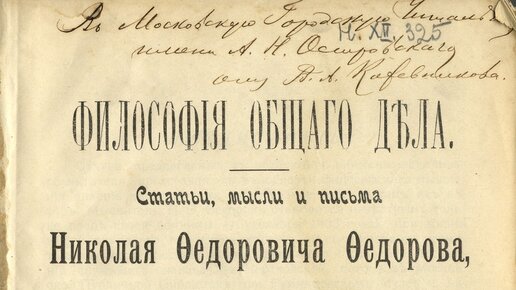 Въ Московскую Городскую Читальню
имени А. Н. Островскаго
Н. XVI, 325
отъ В. А. Кожевникова.
ФИЛОСОФІЯ ОБЩАГО ДѢЛА.
Статьи, мысли и письма
Николая Ѳедоровича Ѳедорова,